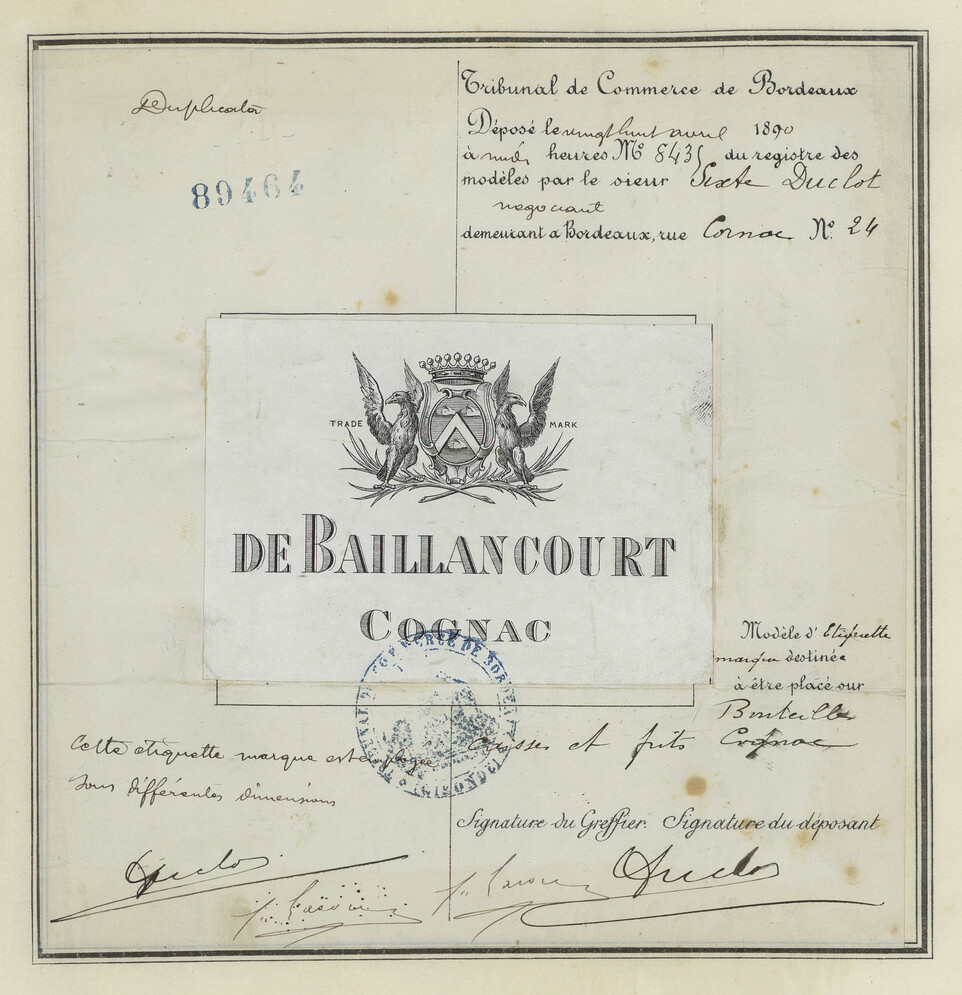 Duplicata
89464
Tribunal de Commerce de Bordeaux
Déposé le vingt huit avril 1890
à midi heures No 8435 du registre des
modèles par le sieur Sixte Duclot
negociant
demeurant a Bordeaux, rue Cornac No. 24
TRADE MARK
DE BAILLANCOURT
COGNAC
Modèle d'Etiquette
marque destinée
à être placé sur
Bouteilles
Caisses et futs Cognac
TRIBUNAL DE COMMERCE DE BORDEAUX
(GIRONDE)
Cette étiquette marque est employée
sous différentes dimensions
Signature du Greffier. Signature du déposant
Duclot
Duclot